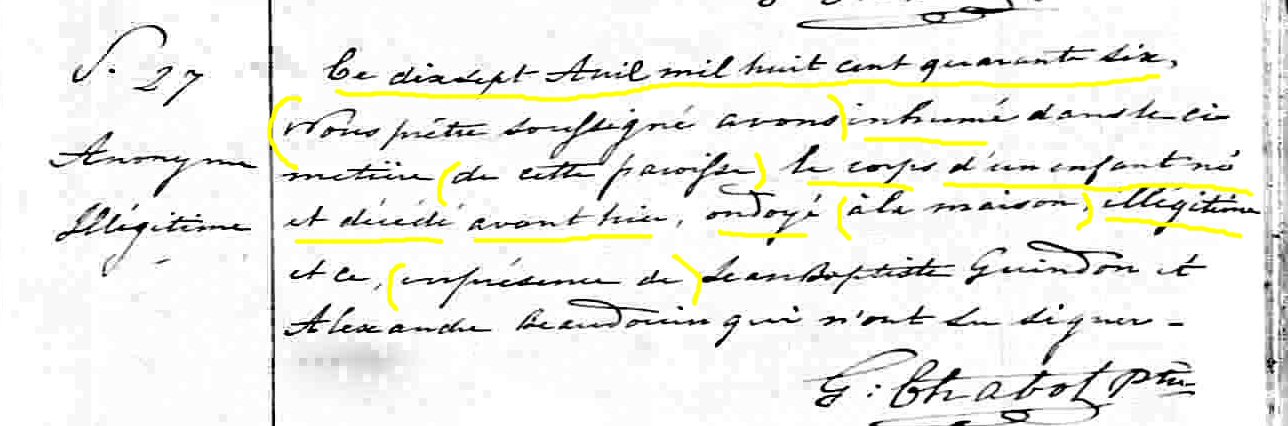 S. 27
Anonyme
Illégitime
Ce dixsept Avil mil huit cent quarante six,
Nous prêtre soussigné avons inhumé dans le ci
metière de cette paroisse le corps d'un enfant né
et décédé avant hier, ondoyé à la maison, illégitime
et ce, en présence de Jean Baptiste Guindon et
Alexandre Beaudouin qui n'ont su signer -
G: Chabot Ptre